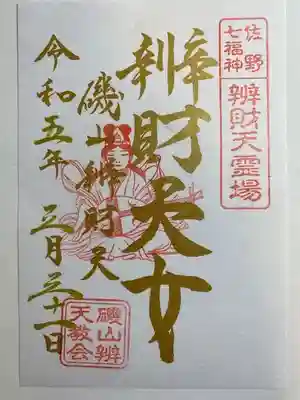 佐野
七福神
辨財天霊場
辨財天女
磯山辨財天
令和五年 三月三十一日
磯山辨
天教会